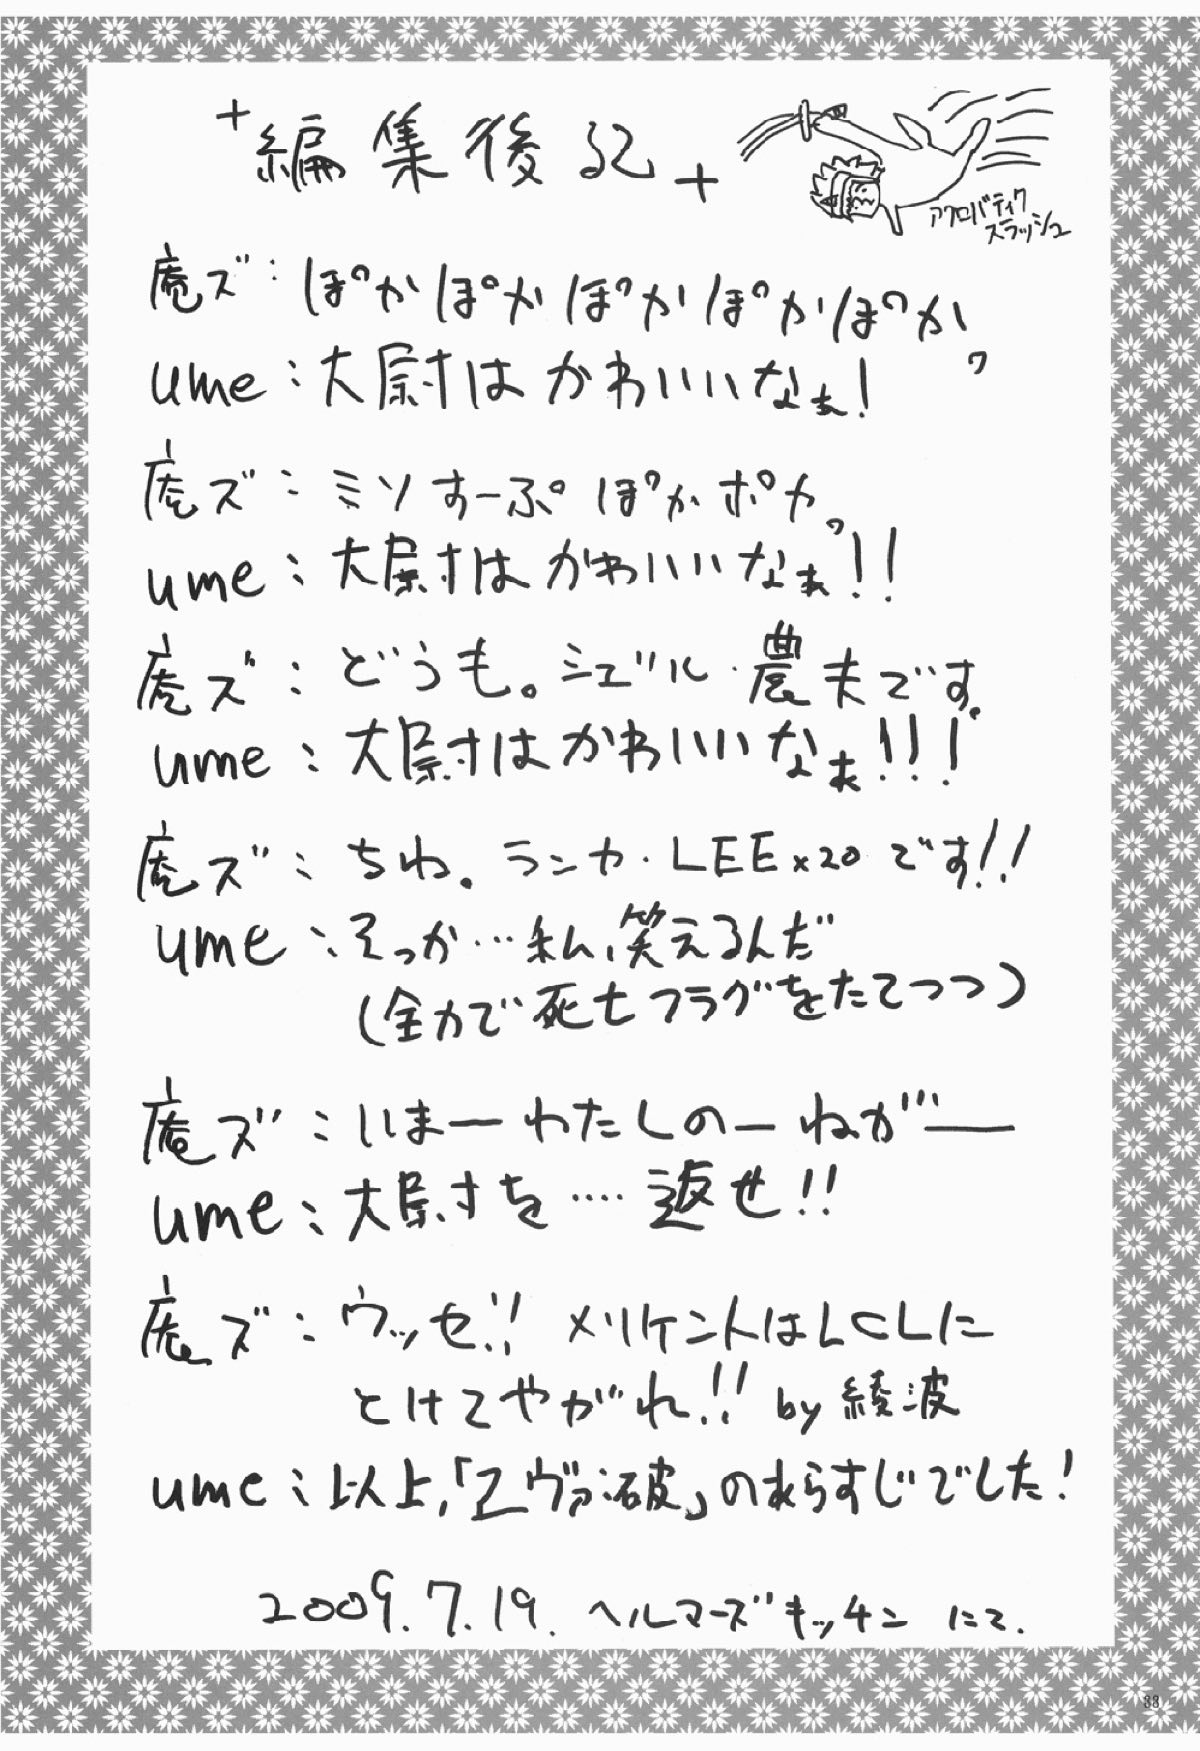 +編集後記+
アクロバティク
スラッシュ
庵ズ:ぽかぽかぽかぽかぽか。
ume:大尉はかわいいなぁ!
庵ズ:ミソすーぷぽかポカ。
ume:大尉はかわいいなぁ!!
庵ズ:どうも。シュゲル・農夫です。
ume:大尉はかわいいなぁ!!!
庵ズ:ちわ。ランカ・LEE×20です!!
ume:そっか…私、笑えるんだ
(全力で死亡フラグをたてつつ)
庵ズ:いまーわたしのーねがーー
ume:大尉を‥‥返せ!!
庵ズ:ウッセ!! メリケントはLCLに
とけてやがれ!! by 綾波
ume:以上、「ヱヴァ:破」のあらすじでした!
2009.7.19. ヘルマーズキッチン にて.
33